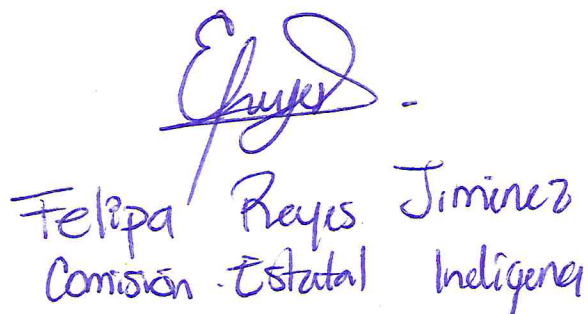 Felipa Reyes Jiminez
Comisión Estatal Indígena